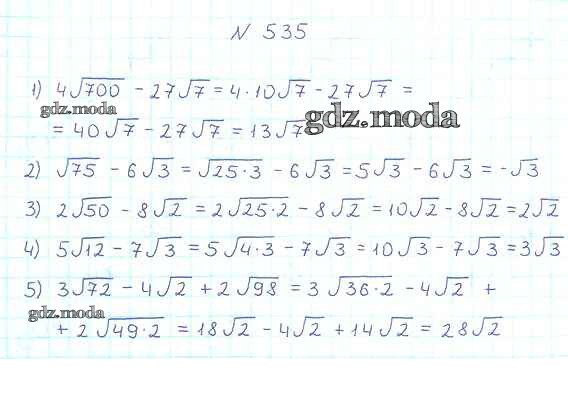 N 535
1) 4√700 - 27√7 = 4·10√7 - 27√7 =
gdz.moda
gdz.moda
= 40√7 - 27√7 = 13√7
2) √75 - 6√3 = √25·3 - 6√3 = 5√3 - 6√3 = -√3
3) 2√50 - 8√2 = 2√25·2 - 8√2 = 10√2 - 8√2 = 2√2
4) 5√12 - 7√3 = 5√4·3 - 7√3 = 10√3 - 7√3 = 3√3
5) 3√72 - 4√2 + 2√98 = 3√36·2 - 4√2 +
gdz.moda
+ 2√49·2 = 18√2 - 4√2 + 14√2 = 28√2